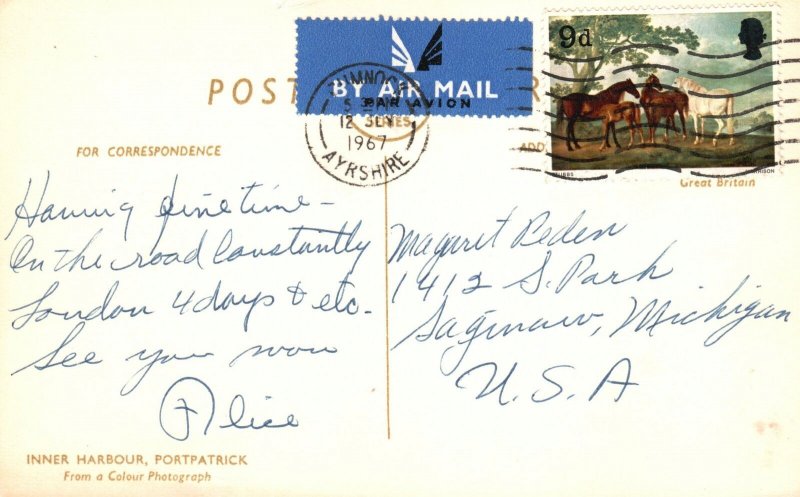 POST
BY AIR MAIL
PAR AVION
9d
CUMNOCK
12 JLY
1967
AYRSHIRE
STUBBS
HARRISON
Great Britain
FOR CORRESPONDENCE
ADD
Having fine time -
On the road constantly
London 4 days & etc -
See you soon
Alice
Magaret Peden
1412 S. Park
Saginaw, Michigan
U.S.A
INNER HARBOUR, PORTPATRICK
From a Colour Photograph